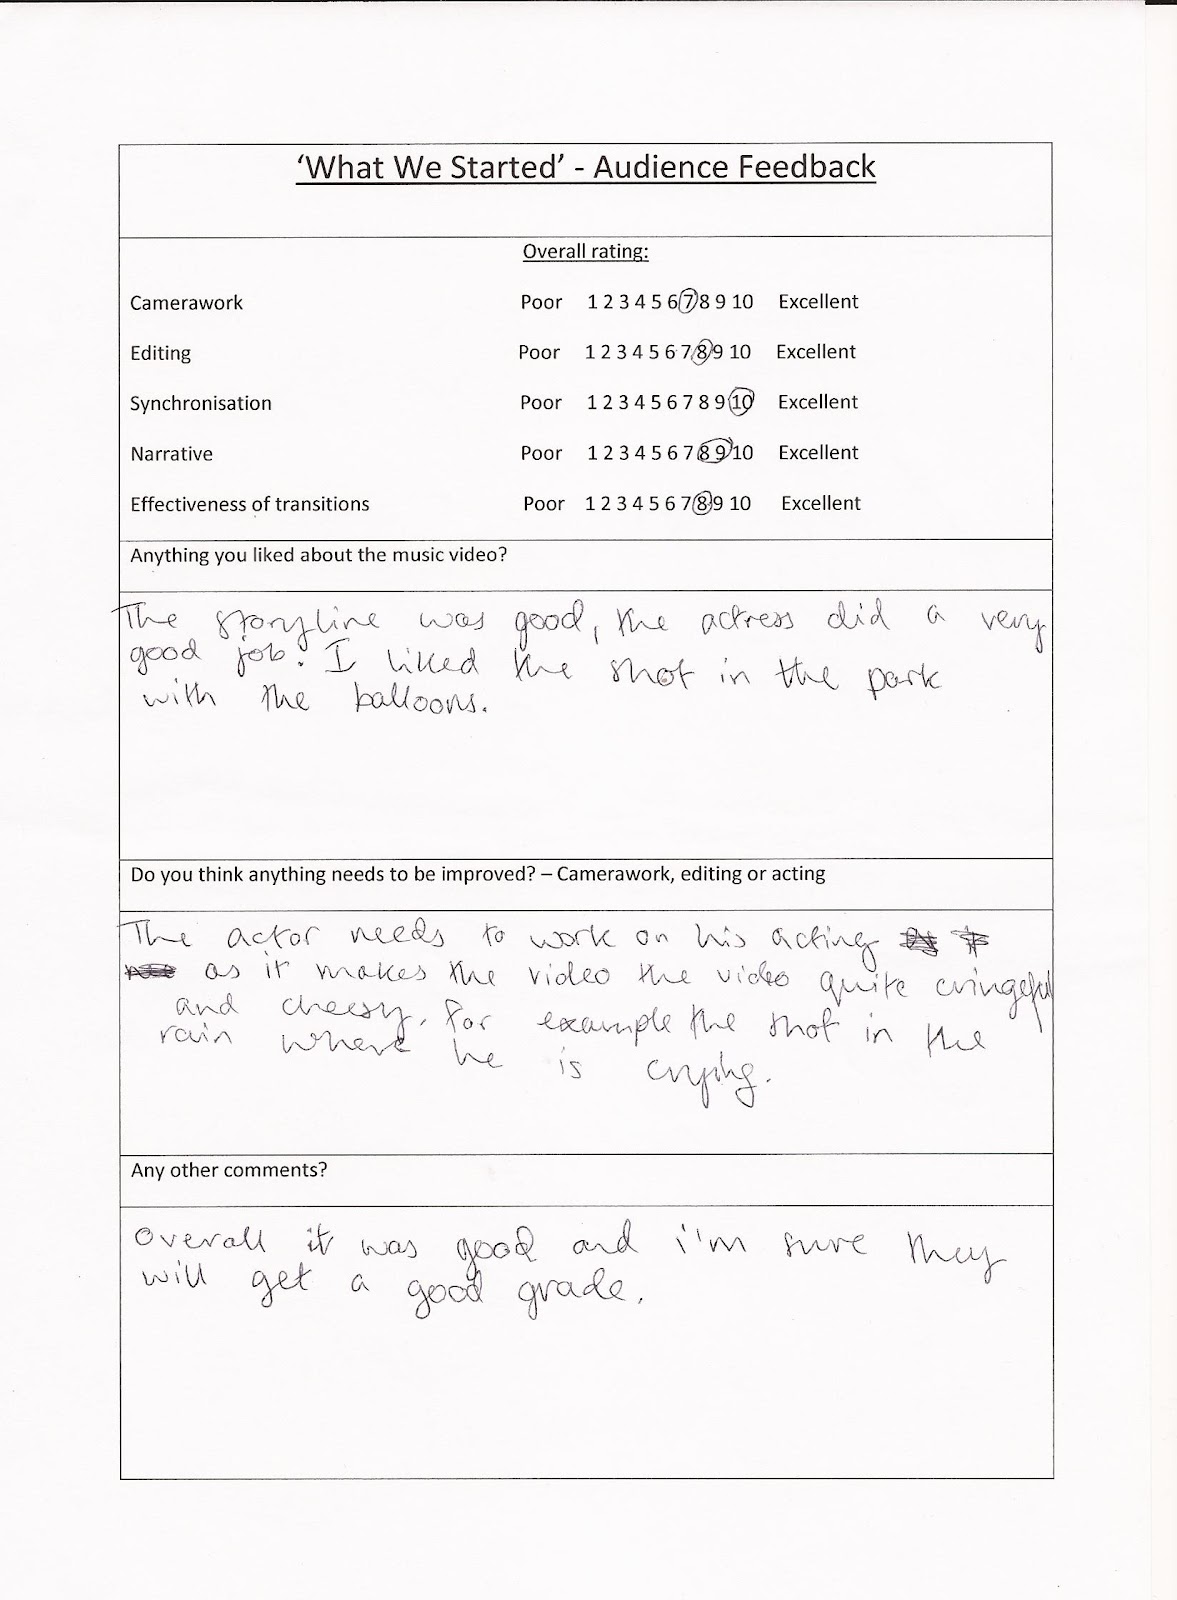 ‘What We Started’ - Audience Feedback
Overall rating:
Camerawork Poor 1 2 3 4 5 6 7 8 9 10 Excellent
Editing Poor 1 2 3 4 5 6 7 8 9 10 Excellent
Synchronisation Poor 1 2 3 4 5 6 7 8 9 10 Excellent
Narrative Poor 1 2 3 4 5 6 7 8 9 10 Excellent
Effectiveness of transitions Poor 1 2 3 4 5 6 7 8 9 10 Excellent
Anything you liked about the music video?
The storyline was good, the actress did a very
good job. I liked the shot in the park
with the balloons.
Do you think anything needs to be improved? – Camerawork, editing or acting
The actor needs to work on his acting
as it makes the video the video quite cringeful
and cheesy, for example the shot in the
rain where he is crying.
Any other comments?
Overall it was good and i'm sure they
will get a good grade.